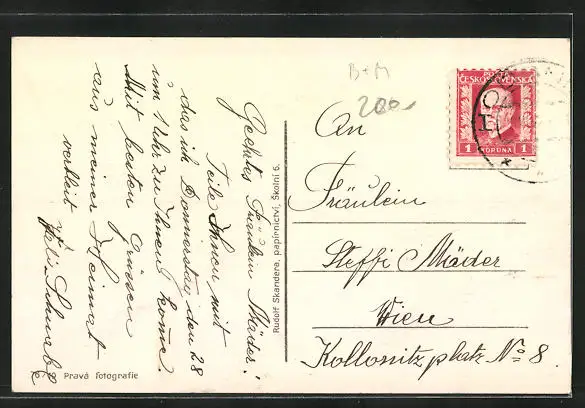 Geehrtes Fräulein Mäder!
Teile Ihnen mit
das ich Donnerstag den 28
um Uhr zu Ihnen komme.
Mit besten Grüssen
aus meiner Heimat
verbleit
Rudolf Skandera, papírnictví, Školní 6.
76/49 Pravá fotografie
B+M
200.-
POŠTA
ČESKOSLOVENSKÁ
1 KORUNA 1
An
Fräulein
Steffi Mäder
Wien
Kollonitzplatz No 8.